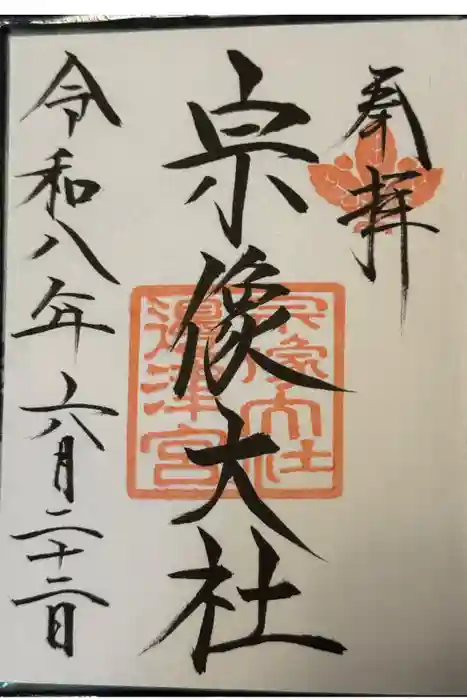 奉拝
宗像大社
宗像大社
邊津宮
令和八年六月二十二日